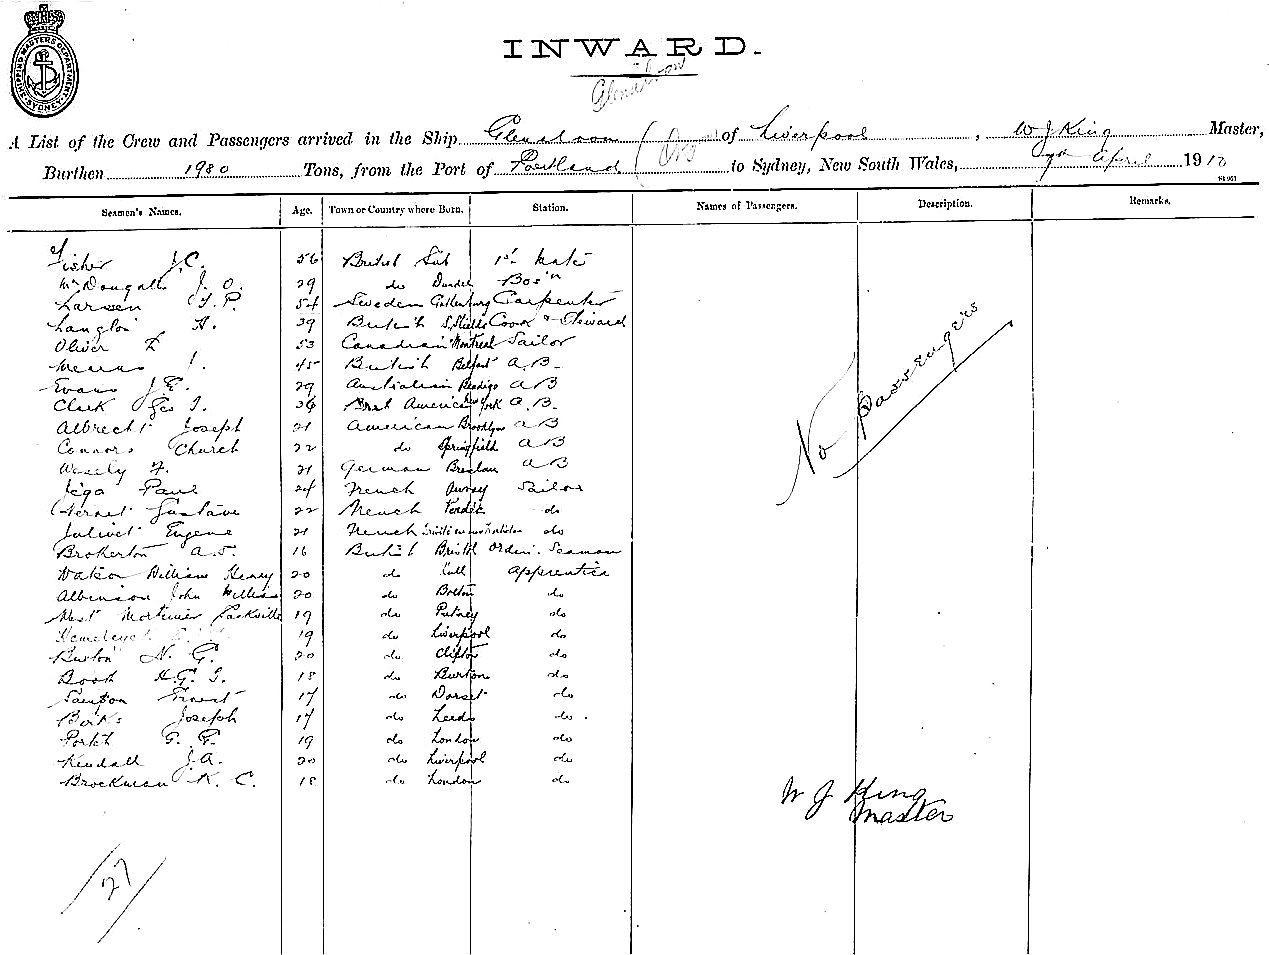 SHIPPING MASTERS DEPARTMENT SYDNEY
INWARD.
A List of the Crew and Passengers arrived in the Ship of Liverpool, W J King Master,
Burthen 1980 Tons, from the Port of Portland (Or) to Sydney, New South Wales, 7th April 1910
Seamen's Names. Age. Town or Country where Born. Station. Names of Passengers. Description. Remarks.
Fisher J.C. 56 British Sub 1st Mate
McDougall J. O. 29 do Dundee Bos'n
Larsen F. P. 54 Sweden Gothenburg Carpenter
Langlois A. 39 British S. Shields Cook & Steward
Oliver 53 Canadian Montreal Sailor
J. 45 British Belfast A.B.
Evans J. E. 29 Australian Bendigo A B
Clerk Geo 26 American York A.B.
Albrecht Joseph 21 American Brooklyn A B
Connors Church 22 do Springfield A B
Wesely F. 21 German Breslau A B
Jégo Paul 24 French Sailor
Gustave 22 French do
Julivet Eugene 21 French do
Brokerton A. S. 16 British Bristol Ordin. Seaman
William Henry 20 do Hull Apprentice
Albinson John William 20 do Bolton do
West Mortimer Sackville 19 do Putney do
19 do Liverpool do
Burton N. G. 20 do Clifton do
Book 18 do Burton do
Ernest 17 do Dorset do
Birks Joseph 17 do Leeds do.
19 do London do
Kendall J.A. 20 do Liverpool do
Brockman K. C. 18 do London do
No Passengers
W J King
Master
27